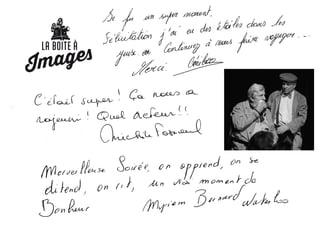 LA BOITE À
Images
Ce fut un super moment.
Félicitation j'ai eu des étoiles dans les
yeux. Continuez à nous faire voyager...
Merci
C'était super! Ça nous a
rajeuni! Quel acteur!!
Michèle
Merveilleuse Soirée, on apprend, on se
détend, on rit, un vrai moment de
Bonheur
Myriam Bernard Waterloo